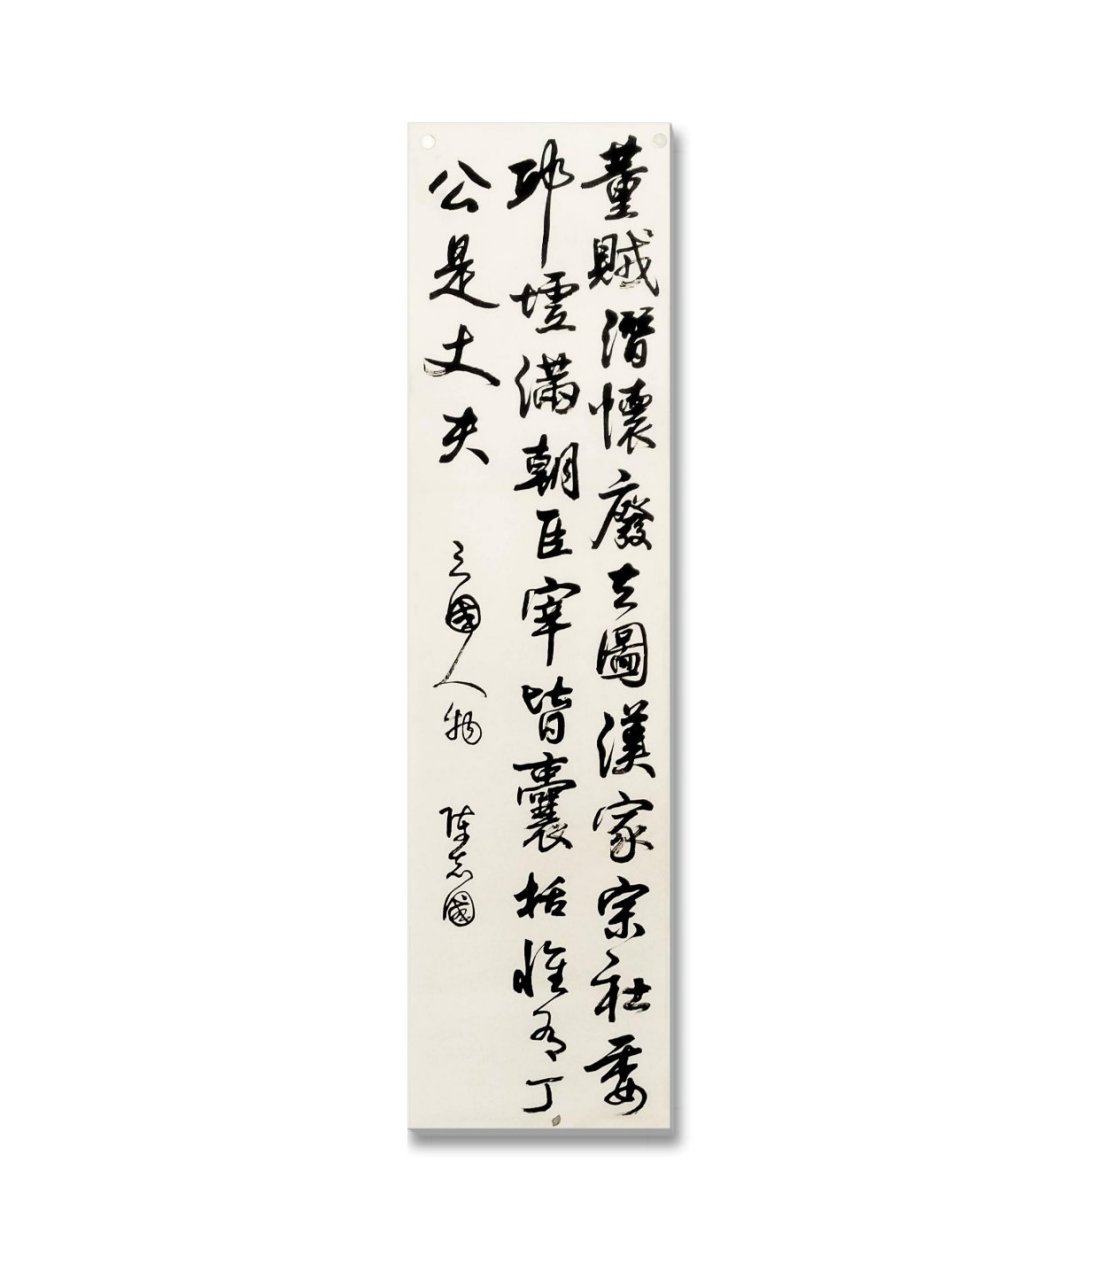 董賊潛懷廢立圖漢家宗社委
邱墟滿朝臣宰皆囊括惟有丁
公是丈夫
三國人物
陳志國